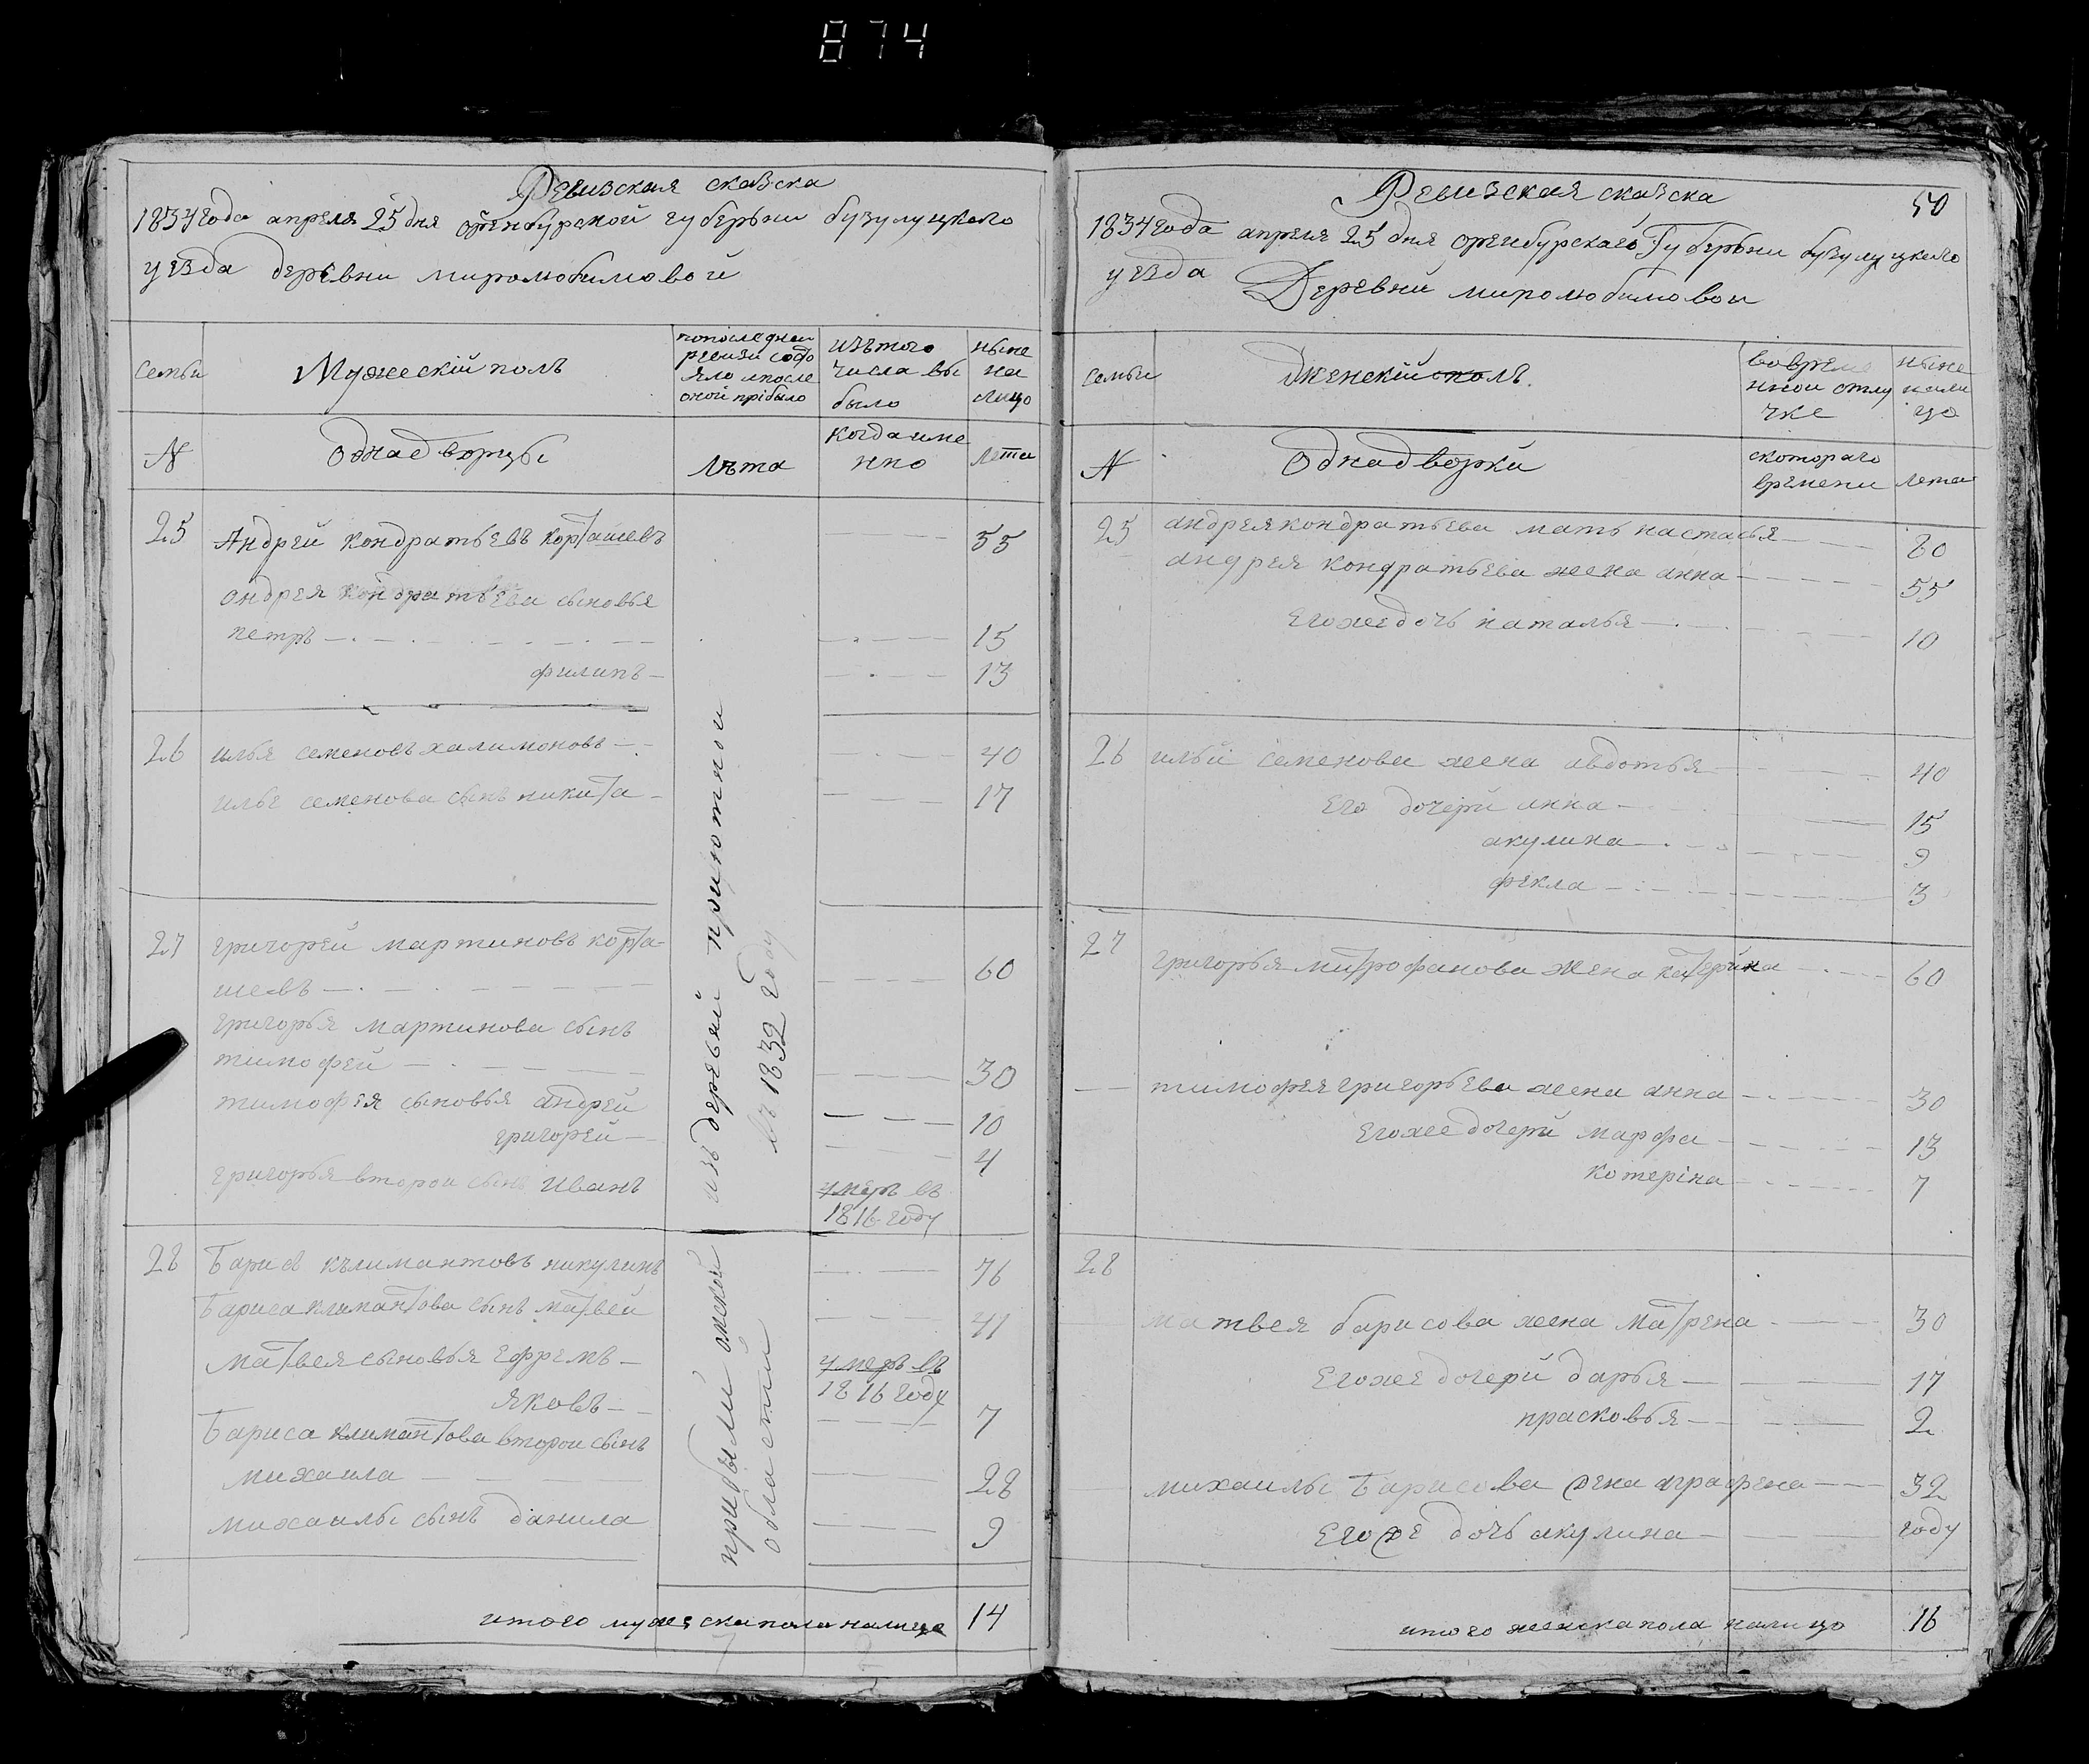 874
Ревизская сказска
1834 года апреля 25 дня оренбурской губерьнии бузулуцкого
уезда деревни миролюбимовой
семьи
Мужескій полъ
попоследнеи
ревизи состо
яло ипосле
оной прібыло
изътого
числа вы
было
ныне
на
лицо
N
Однадворцы
лѣта
когдаиме
нно
лета
25 Андрей кондратьевъ корташевъ 55
андрея кондратьева сыновья
петръ 15
филипъ 13
26 илья семеновъ халимоновъ 40
ильи семенова сынъ никита 17
27 григорей мартиновъ корта-
шевъ 60
григорья мартинова сынъ
тимофей 30
тимофея сыновья андрей 10
григорей 4
григорья второй сынъ иванъ умеръ въ
1816 году
28 Барисъ кълимантовъ никулинъ 76
Бариса климантова сынъ матвей 41
матвея сыновья ефремъ умеръ въ
1816 году
яковъ 7
Бариса климантова второй сынъ
михаила 28
михаилы сынъ данила 9
прибыли омской
области
изъ деревьни приютнои
въ 1832 году
итого мужеска пола налицо 14
50
Ревизская сказска
1834 года апреля 25 дня оренбурскаго Губерьни бузулуцкого
уезда Деревни миролюбимовои
семьи
Женскій полъ
вовреме
нной отлу
чке
ныне
нали
цо
N
Однадворки
скотораго
времени
лета
25 андрея кондратьева мать настасья 80
андрея кондратьева жена анна 55
Егоже дочь наталья 10
26 ильи семенова жена авдотья 40
Его дочери анна 15
акулина 9
фекла 3
27 григорья митрофанова жена катерина 60
тимофея григорьева жена анна 30
Егоже дочери марфа 13
котеріна 7
28
матвея барисова жена матрена 30
Егоже дочери дарья 17
прасковья 2
михаилы Барисова жена аграфена 32
Егоже дочь акулина году
итого женска пола налицо 16